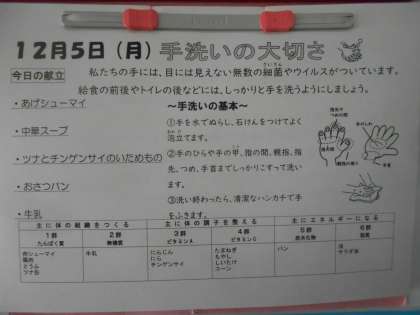 12月5日（月）手洗いの大切さ
今日の献立
私たちの手には、目には見えない無数の細菌やウイルスがついています。
給食の前後やトイレの後などには、しっかりと手を洗うようにしましょう。
・あげシューマイ
・中華スープ
・ツナとチンゲンサイのいためもの
・おさつパン
・牛乳
～手洗いの基本～
①手を水でぬらし、石けんをつけてよく
泡立てます。
②手のひらや手の甲、指の間、親指、指
先、つめ、手首までしっかりこすって洗い
ます。
③洗い終わったら、清潔なハンカチで手
をふきます。
主に体の組織をつくる
主に体の調子を整える
主にエネルギーになる
1群
たんぱく質
2群
無機質
3群
ビタミンA
4群
ビタミンC
5群
炭水化物
6群
脂質
肉シューマイ
鶏肉
とうふ
ツナ缶
牛乳
にんじん
にら
チンゲンサイ
たまねぎ
もやし
しいたけ
コーン
パン
油